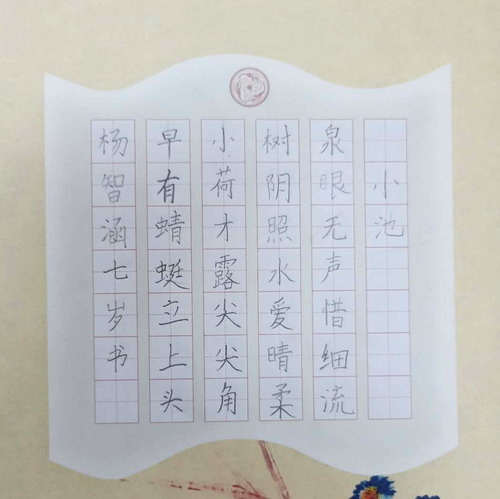 小池
泉眼无声惜细流
树阴照水爱晴柔
小荷才露尖尖角
早有蜻蜓立上头
杨智涵七岁书